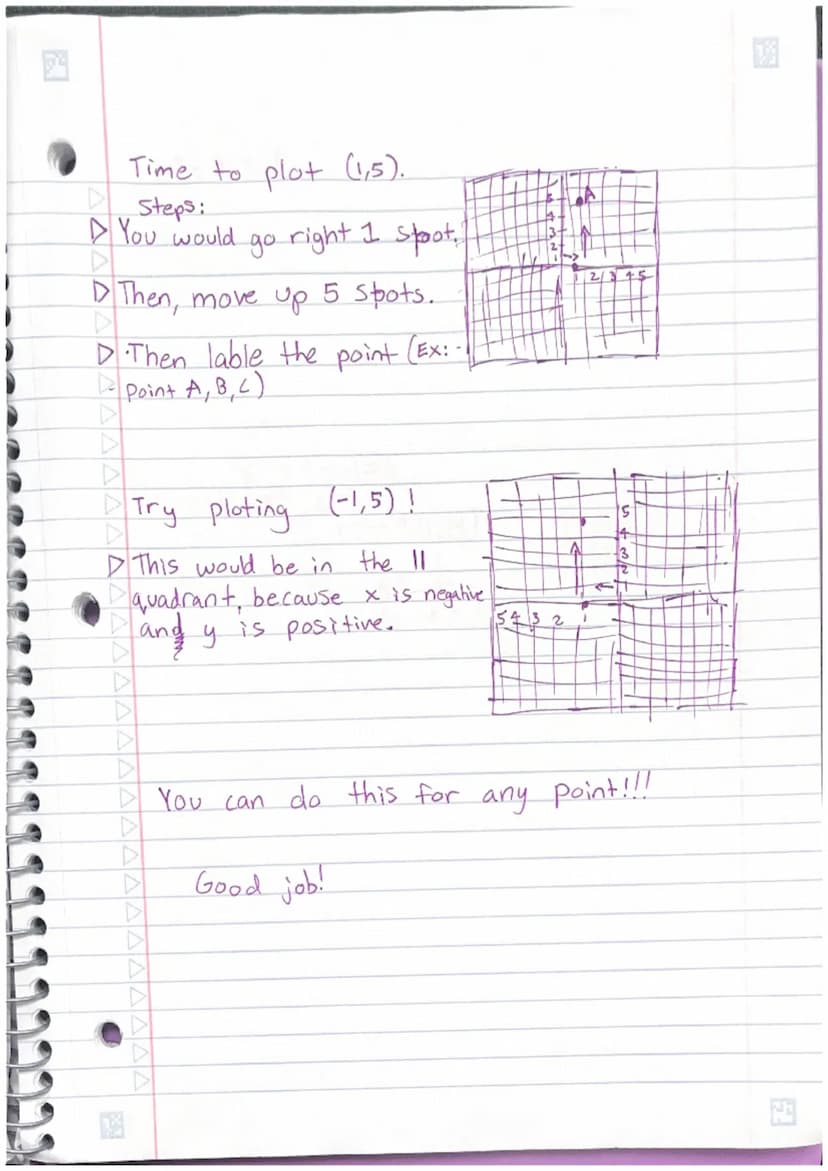 Time to plot (1,5).
Steps:
You would go right 1 spot.
Then, move up 5 spots.
Then lable the point (Ex:
Point A, B, C)
A
5
4
3
2
1
1 2 3 4 5
Try ploting (-1,5)!
This would be in the II
quadrant, because x is negative
and y is positive.
5
4
3
2
1
5 4 3 2 1
You can do this for any point!!!
Good job!